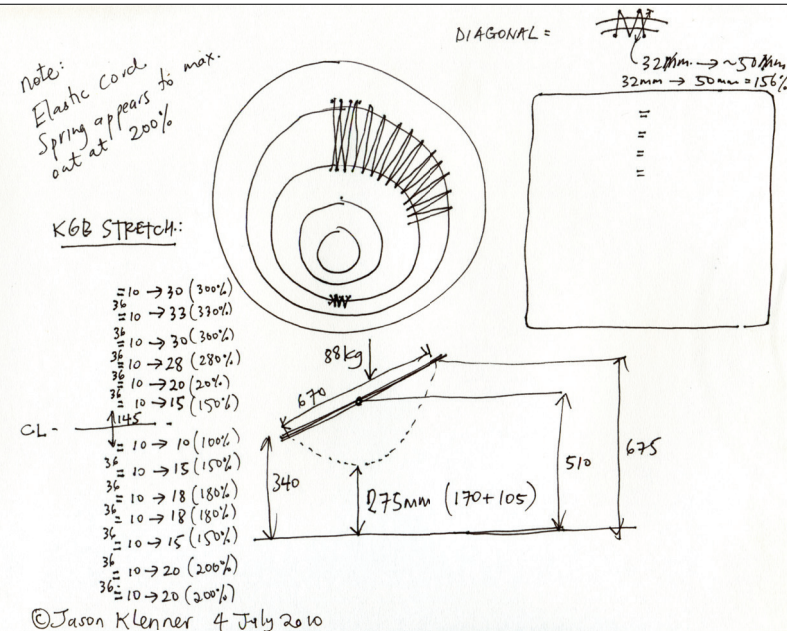 note:
Elastic cord
Spring appears to max.
out at 200%
DIAGONAL =
32mm → ~50mm
32mm → 50mm = 156%
KGB STRETCH:
= 10 → 30 (300%)
36
= 10 → 33 (330%)
36
= 10 → 30 (300%)
36
= 10 → 28 (280%)
36
= 10 → 20 (20%)
36
= 10 → 15 (150%)
145
CL -
= 10 → 10 (100%)
36
= 10 → 15 (150%)
36
= 10 → 18 (180%)
36
= 10 → 18 (180%)
36
= 10 → 15 (150%)
36
= 10 → 20 (200%)
36
= 10 → 20 (200%)
88kg
670
340
275mm (170+105)
510
675
©Jason Klenner 4 July 2010